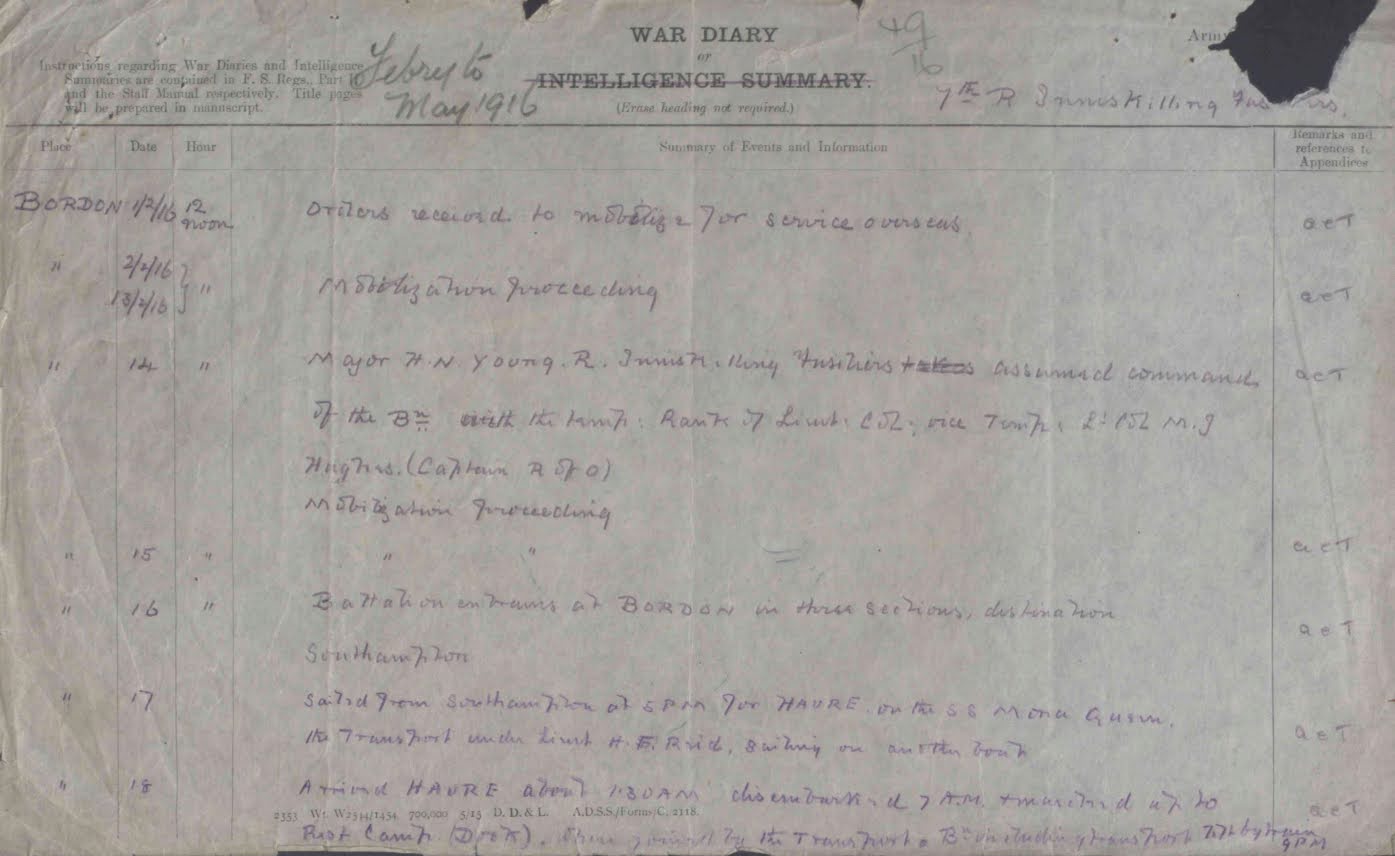 WAR DIARY
or
INTELLIGENCE SUMMARY.
(Erase heading not required.)
49
16
Army
Instructions regarding War Diaries and Intelligence
Summaries are contained in F. S. Regs., Part
and the Staff Manual respectively. Title pages
will be prepared in manuscript.
Febry to
May 1916
7th R Inniskilling Fusiliers.
Place Date Hour Summary of Events and Information Remarks and
references to
Appendices
BORDON 1/2/16 12 noon Orders received to mobilize for service overseas. aeT
" 2/2/16
13/2/16 } " Mobilization proceeding aeT
" 14 " Major H.N. Young. R. Inniskilling Fusiliers takes assumed command aeT
of the Bn with the temp: Rank of Lieut: Col: vice Temp: Lt Col M.J
Hughes. (Captain R of O)
Mobilization proceeding
" 15 " " " aeT
" 16 " Battalion entrains at BORDON in three sections, destination
Southampton aeT
" 17 Sailed from Southampton at 5 PM for HAVRE on the SS Mona Queen.
the Transport under Lieut H.E. Reid. sailing on another boat aeT
" 18 Arrived HAVRE about 1.30 AM disembarked 7 A.M. & marched up to aeT
2353 Wt. W2544/1454 700,000 5/15 D. D. & L. A.D.S.S./Forms/C. 2118.
Rest Camp (Dock). there joined by the Transport. Bn including transport left by train
9PM